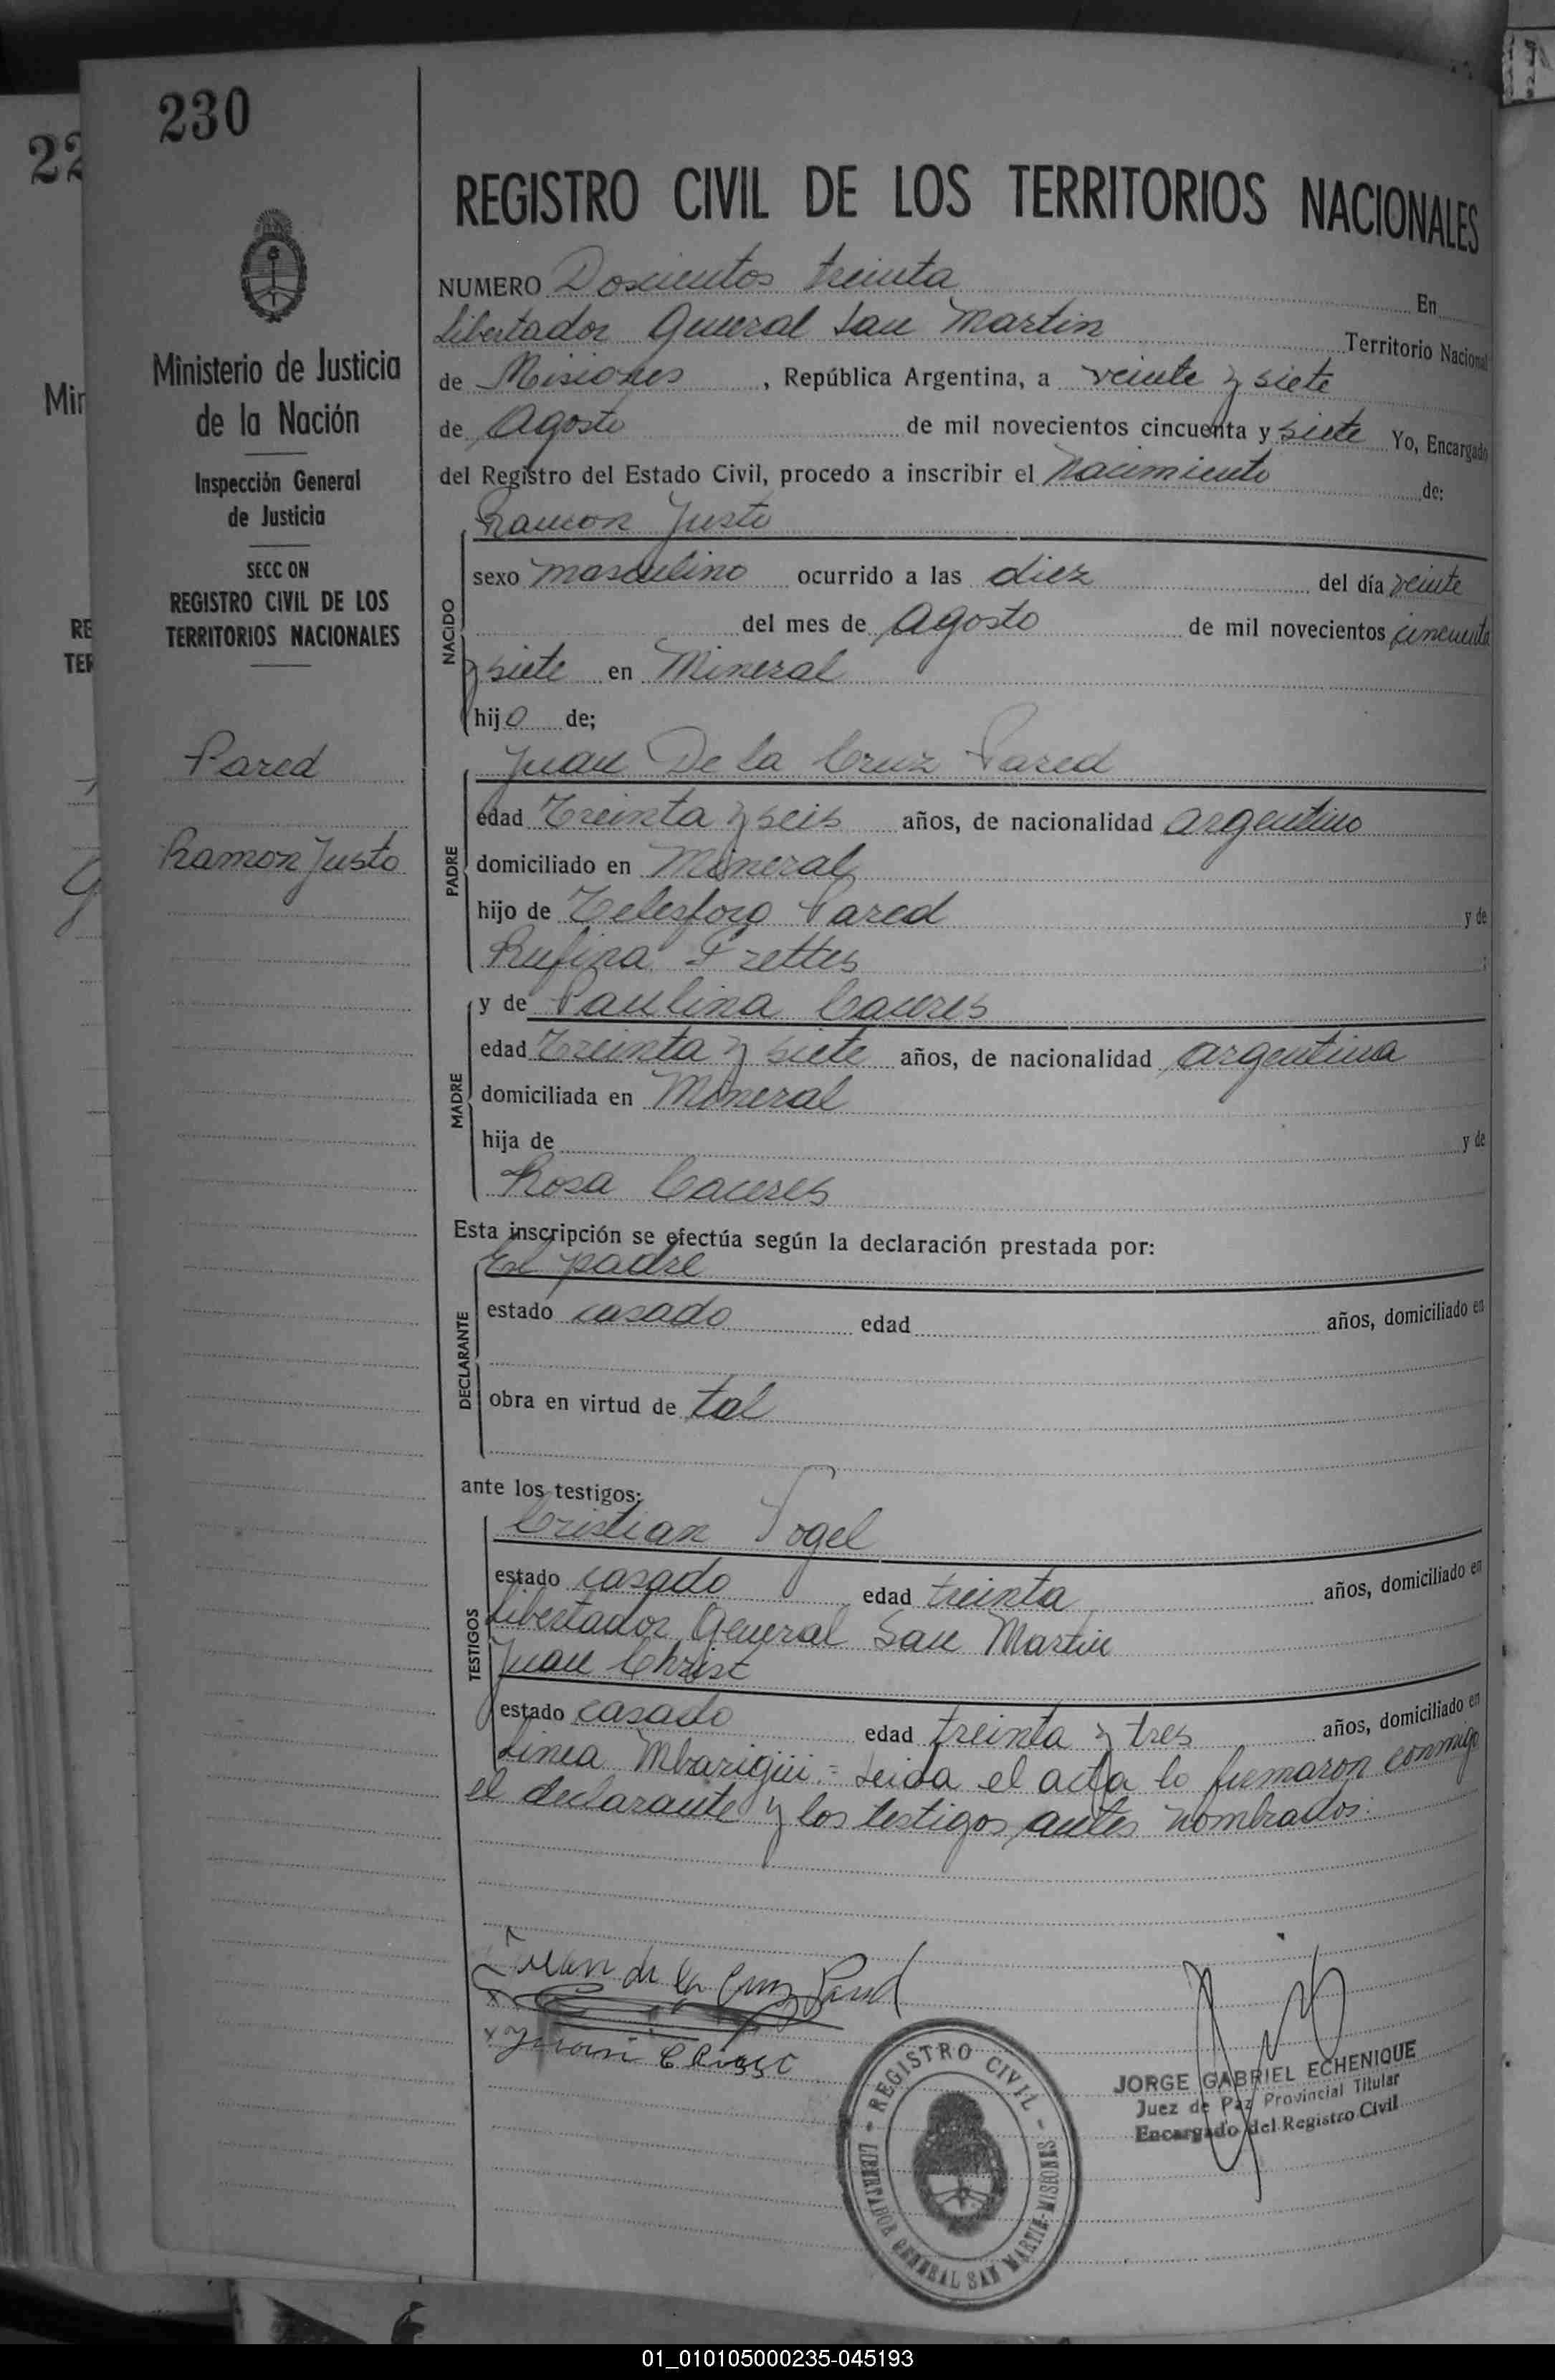 230
Ministerio de Justicia
de la Nación
Inspección General
de Justicia
SECC ON
REGISTRO CIVIL DE LOS
TERRITORIOS NACIONALES
Pared
Ramon Justo
REGISTRO CIVIL DE LOS TERRITORIOS NACIONALES
NUMERO Doscientos treinta En
Libertador General San Martin Territorio Nacional
de Misiones, República Argentina, a veinte y siete
de Agosto de mil novecientos cincuenta y siete Yo, Encargado
del Registro del Estado Civil, procedo a inscribir el Nacimiento de:
Ramon Justo
NACIDO
sexo masculino ocurrido a las diez del día veinte
del mes de Agosto de mil novecientos cincuenta
y siete en Mineral
hijo de;
Juan De la Cruz Pared
PADRE
edad Treinta y seis años, de nacionalidad argentino
domiciliado en Mineral
hijo de Telesforo Pared y de
Rufina Frettes ;
y de Paulina Caceres
MADRE
edad Treinta y siete años, de nacionalidad argentina
domiciliada en Mineral
hija de y de
Rosa Caceres
Esta inscripción se efectúa según la declaración prestada por:
El padre
DECLARANTE
estado casado edad años, domiciliado en
obra en virtud de tal
ante los testigos:
Cristian Vogel
TESTIGOS
estado casado edad treinta años, domiciliado en
Libertador General San Martin
Juan Christ
estado casado edad treinta y tres años, domiciliado en
Linea Mbarigüi.= Leida el acta lo firmaron conmigo
el declarante y los testigos antes nombrados.
Juan de la Cruz Pared
x
x Juan Christ
REGISTRO CIVIL
LIBERTADOR GENERAL SAN MARTIN-MISIONES
JORGE GABRIEL ECHENIQUE
Juez de Paz Provincial Titular
Encargado del Registro Civil
01_010105000235-045193